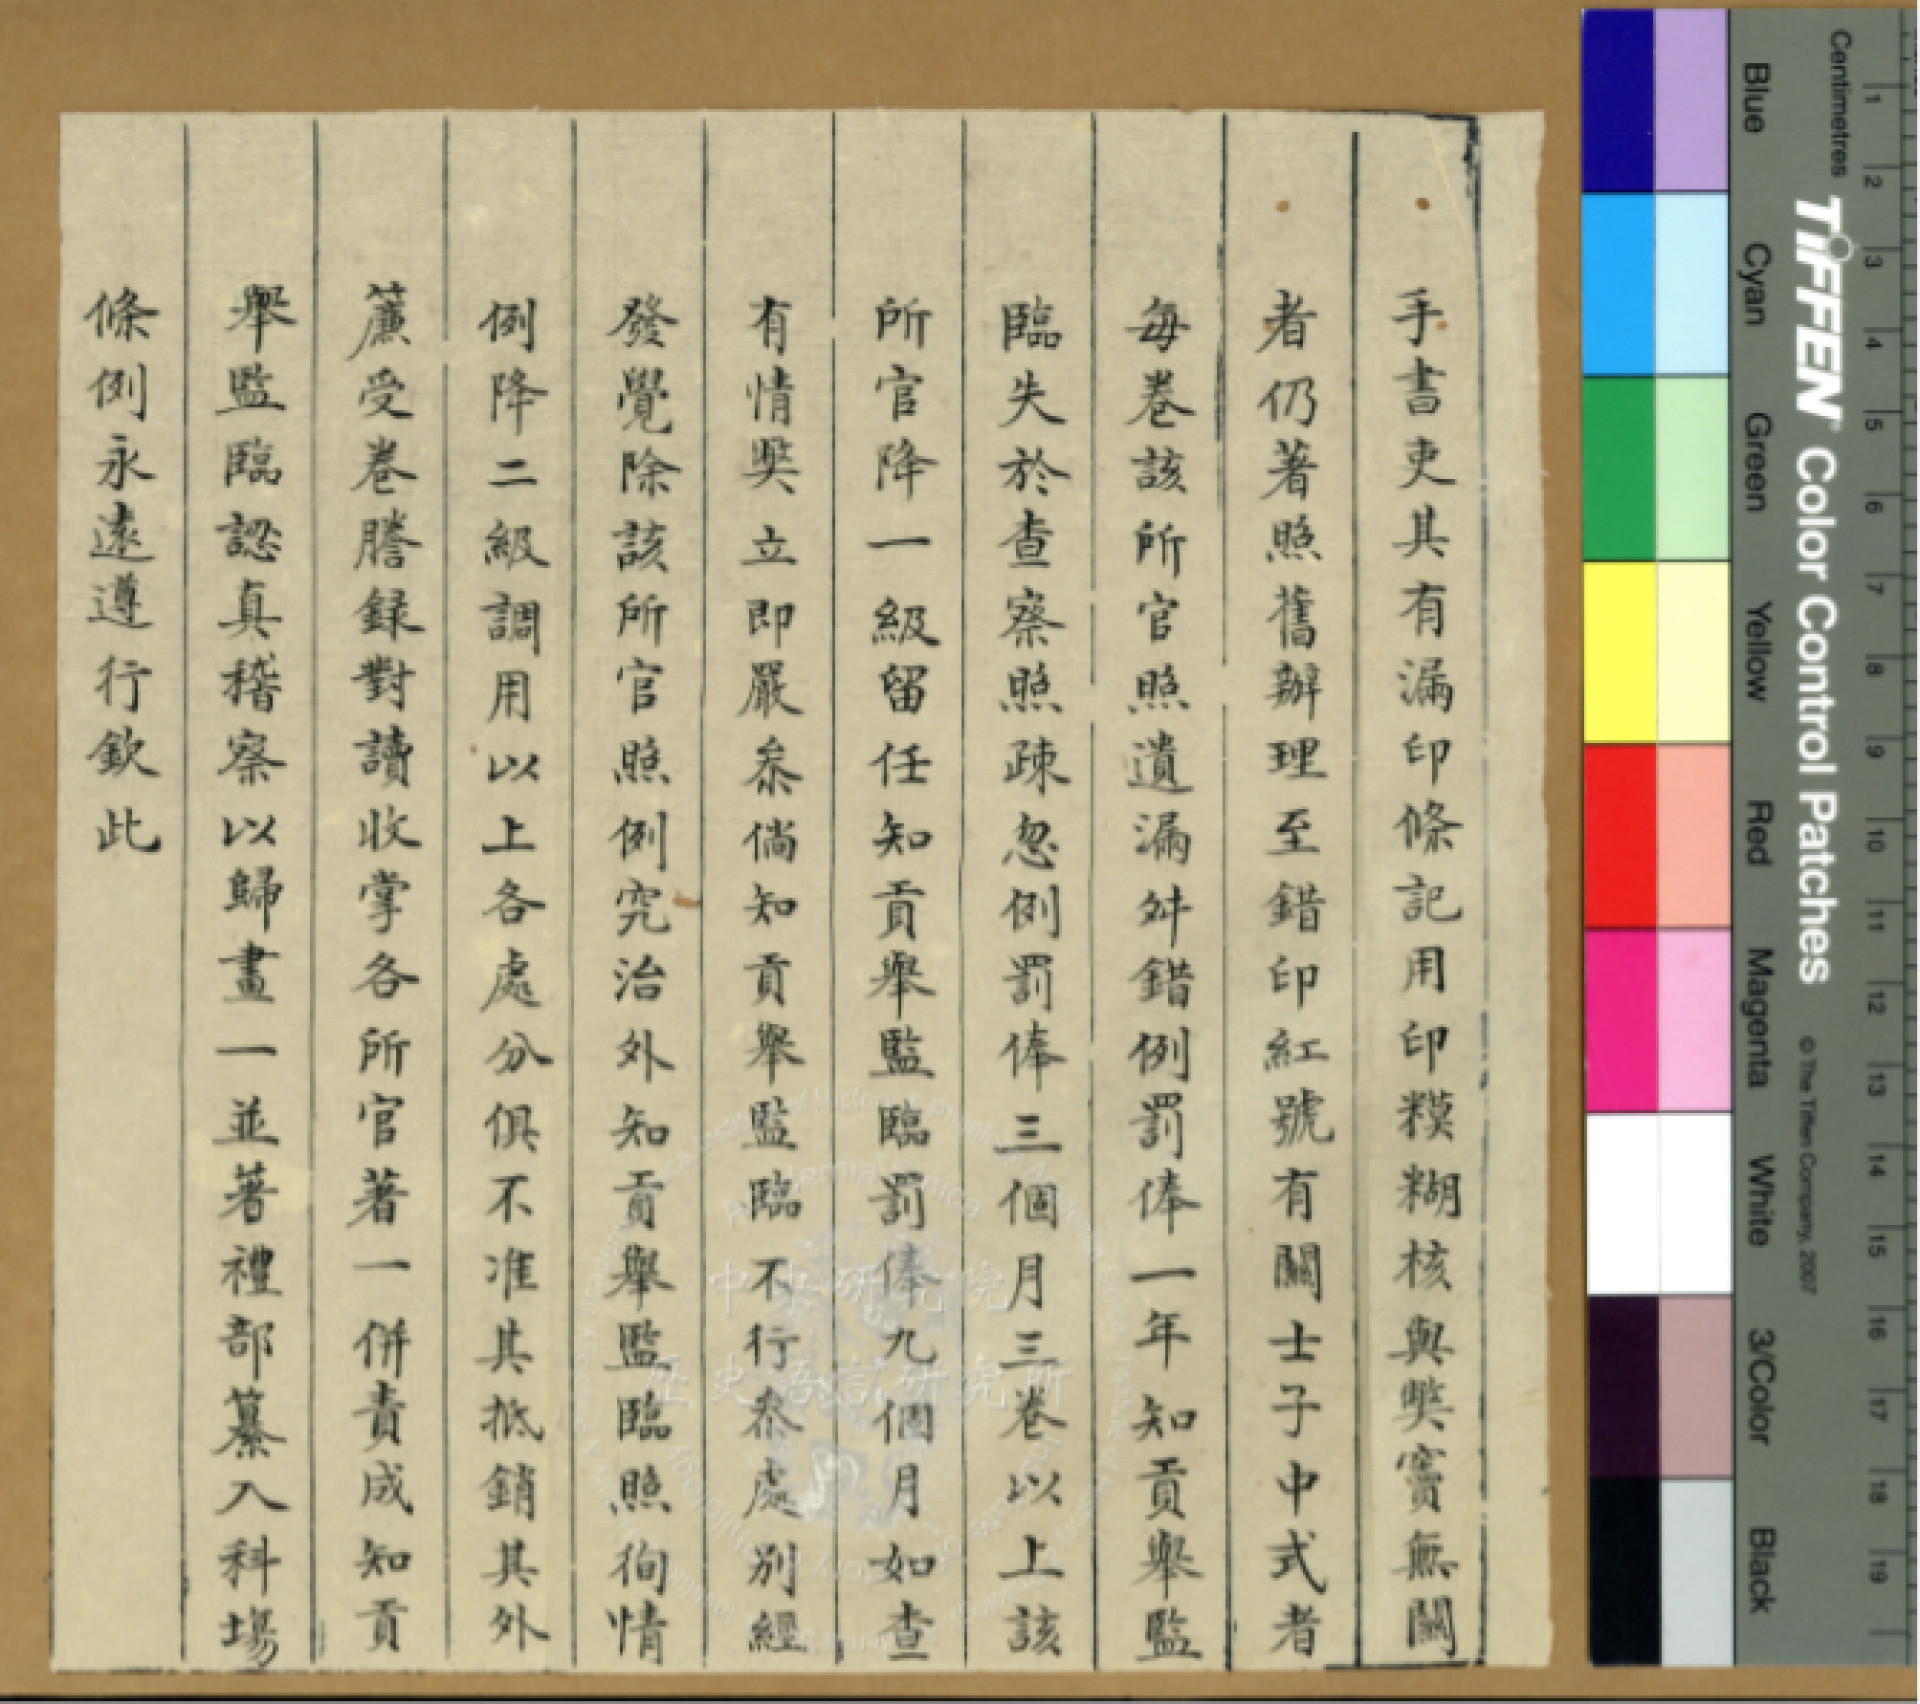 手書吏其有漏印條記用印糢糊核與獘竇無關
者仍著照舊辦理至錯印紅號有關士子中式者
每卷該所官照遺漏舛錯例罰俸一年知貢舉監
臨失於查察照疎忽例罰俸三個月三卷以上該
所官降一級留任知貢舉監臨罰俸九個月如查
有情獘立即嚴叅倘知貢舉監臨不行叅處別經
發覺除該所官照例究治外知貢舉監臨照徇情
例降二級調用以上各處分俱不准其抵銷其外
簾受卷謄録對讀收掌各所官著一併責成知貢
舉監臨認真稽察以歸畫一並著禮部纂入科場
條例永遠遵行欽此
中央研究院
歷史語言研究所
Centimetres
TIFFEN Color Control Patches
© The Tiffen Company, 2007
Blue
Cyan
Green
Yellow
Red
Magenta
White
3/Color
Black
1
2
3
4
5
6
7
8
9
10
11
12
13
14
15
16
17
18
19